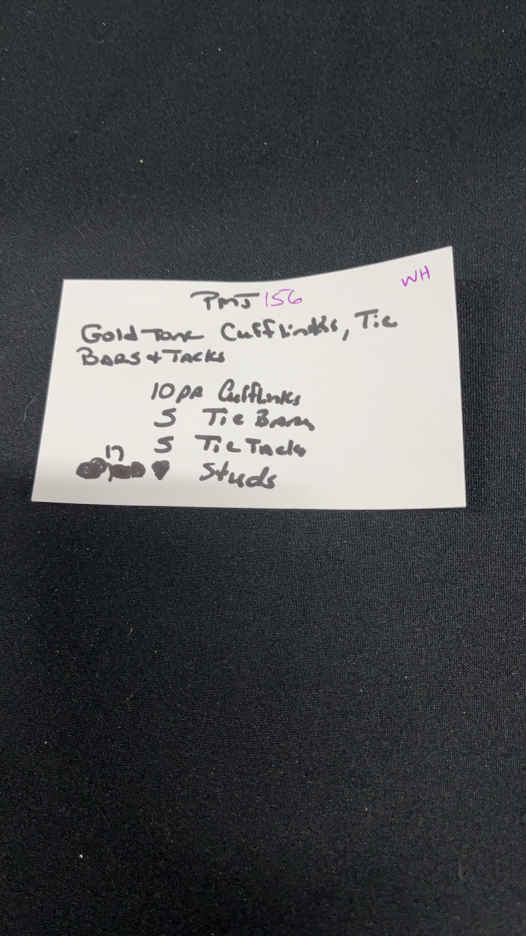 WH
PMJ 156
Gold Tone Cufflinks, Tie
BARS + TACKS
10 PR Cufflinks
5 Tie Bars
5 Tie Tacks
17 Studs